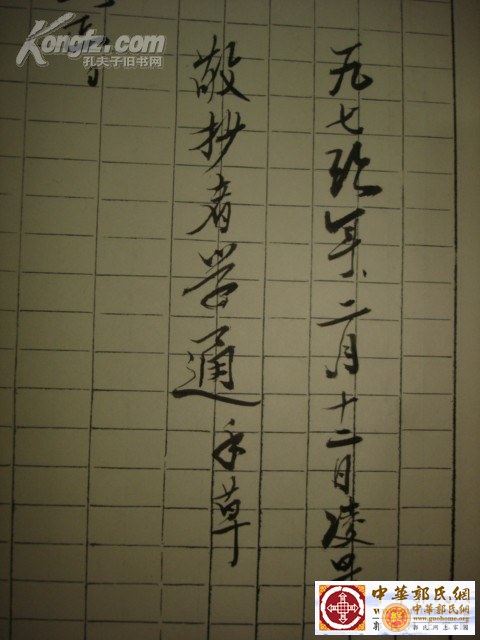 一九七玖年、二月十二日凌
敬抄者学通手草
Kongfz.com
孔夫子旧书网
中華郭氏網
中華郭氏網